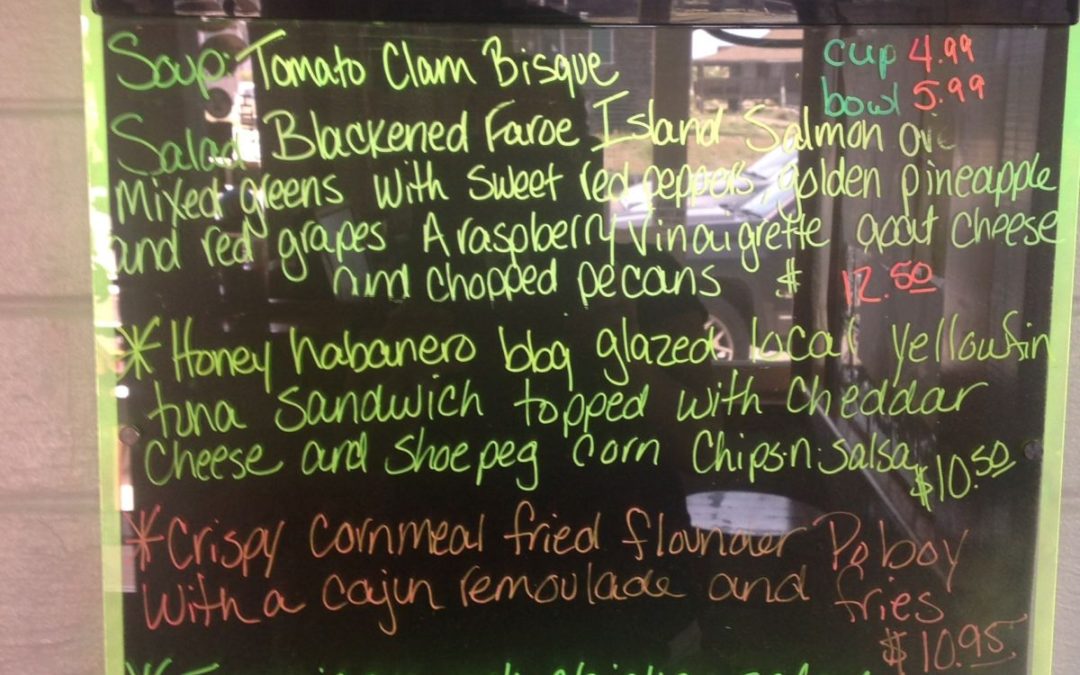 Soup: Tomato Clam Bisque cup 4.99
bowl 5.99
Salad Blackened Faroe Island Salmon
Mixed greens with sweet red peppers, golden pineapple
and red grapes A raspberry Vinaigrette goat cheese
and chopped pecans $ 12.50
*Honey habanero bbq glazed local yellowfin
tuna sandwich topped with Cheddar
Cheese and shoepeg corn Chips.n.salsa $10.50
*Crispy Cornmeal fried flounder Po boy
With a cajun remoulade and fries
$10.95